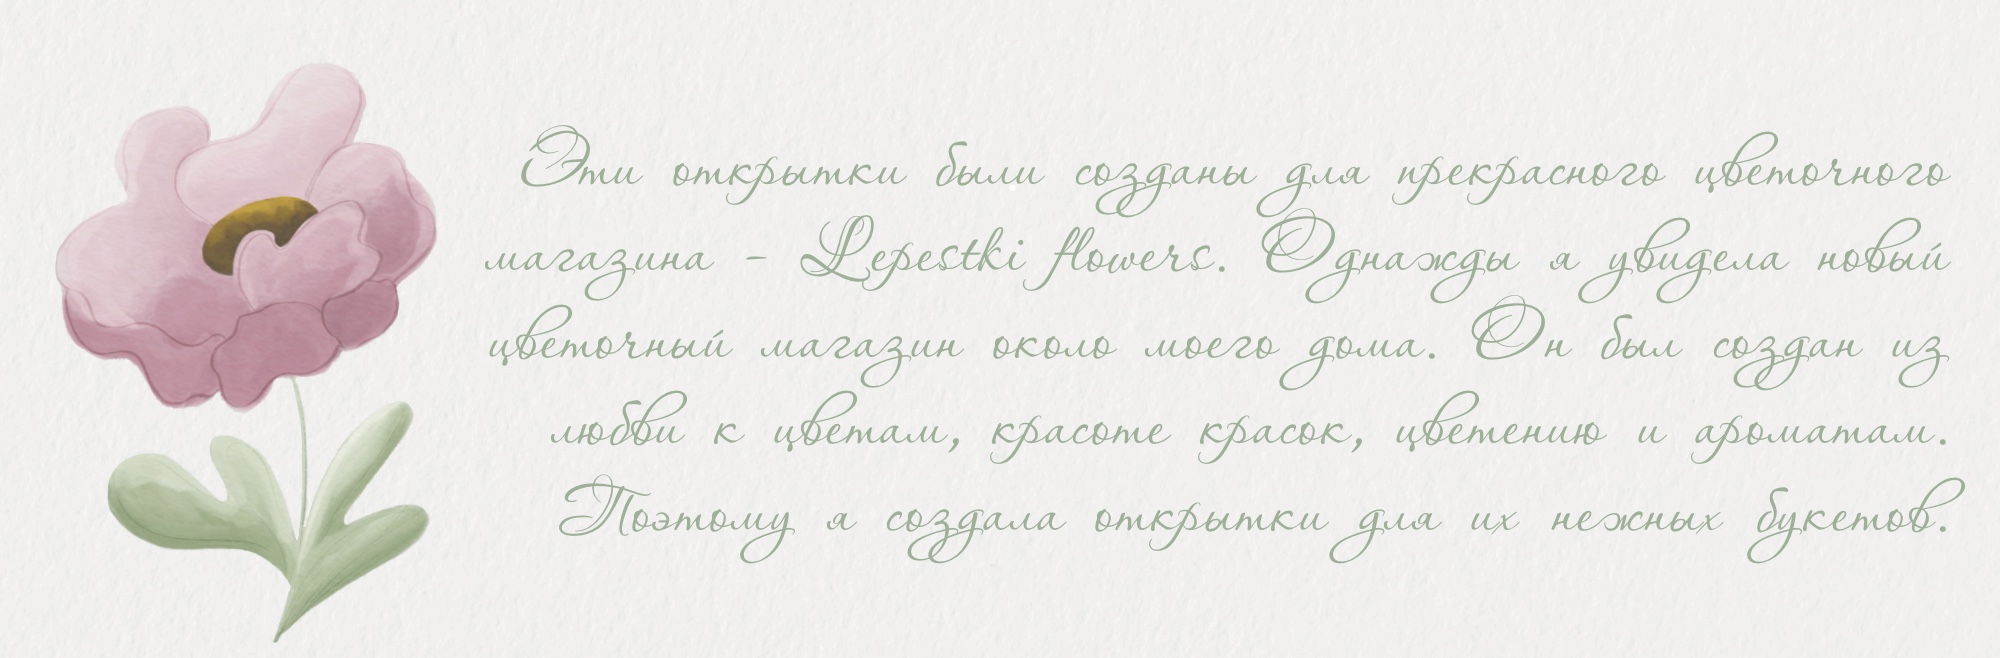 Эти открытки были созданы для прекрасного цветочного
магазина - Lepestki flowers. Однажды я увидела новый
цветочный магазин около моего дома. Он был создан из
любви к цветам, красоте красок, цветению и ароматам.
Поэтому я создала открытки для их нежных букетов.